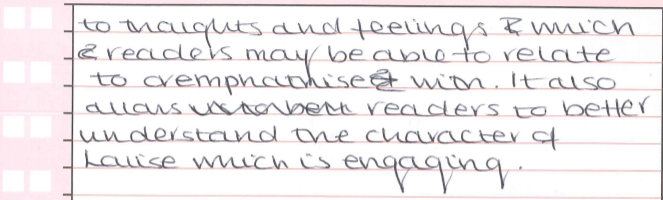 to thoughts and feelings & which
readers may be able to relate
to or emphathise with. It also
allows readers to better
understand the character of
Louise which is engaging.